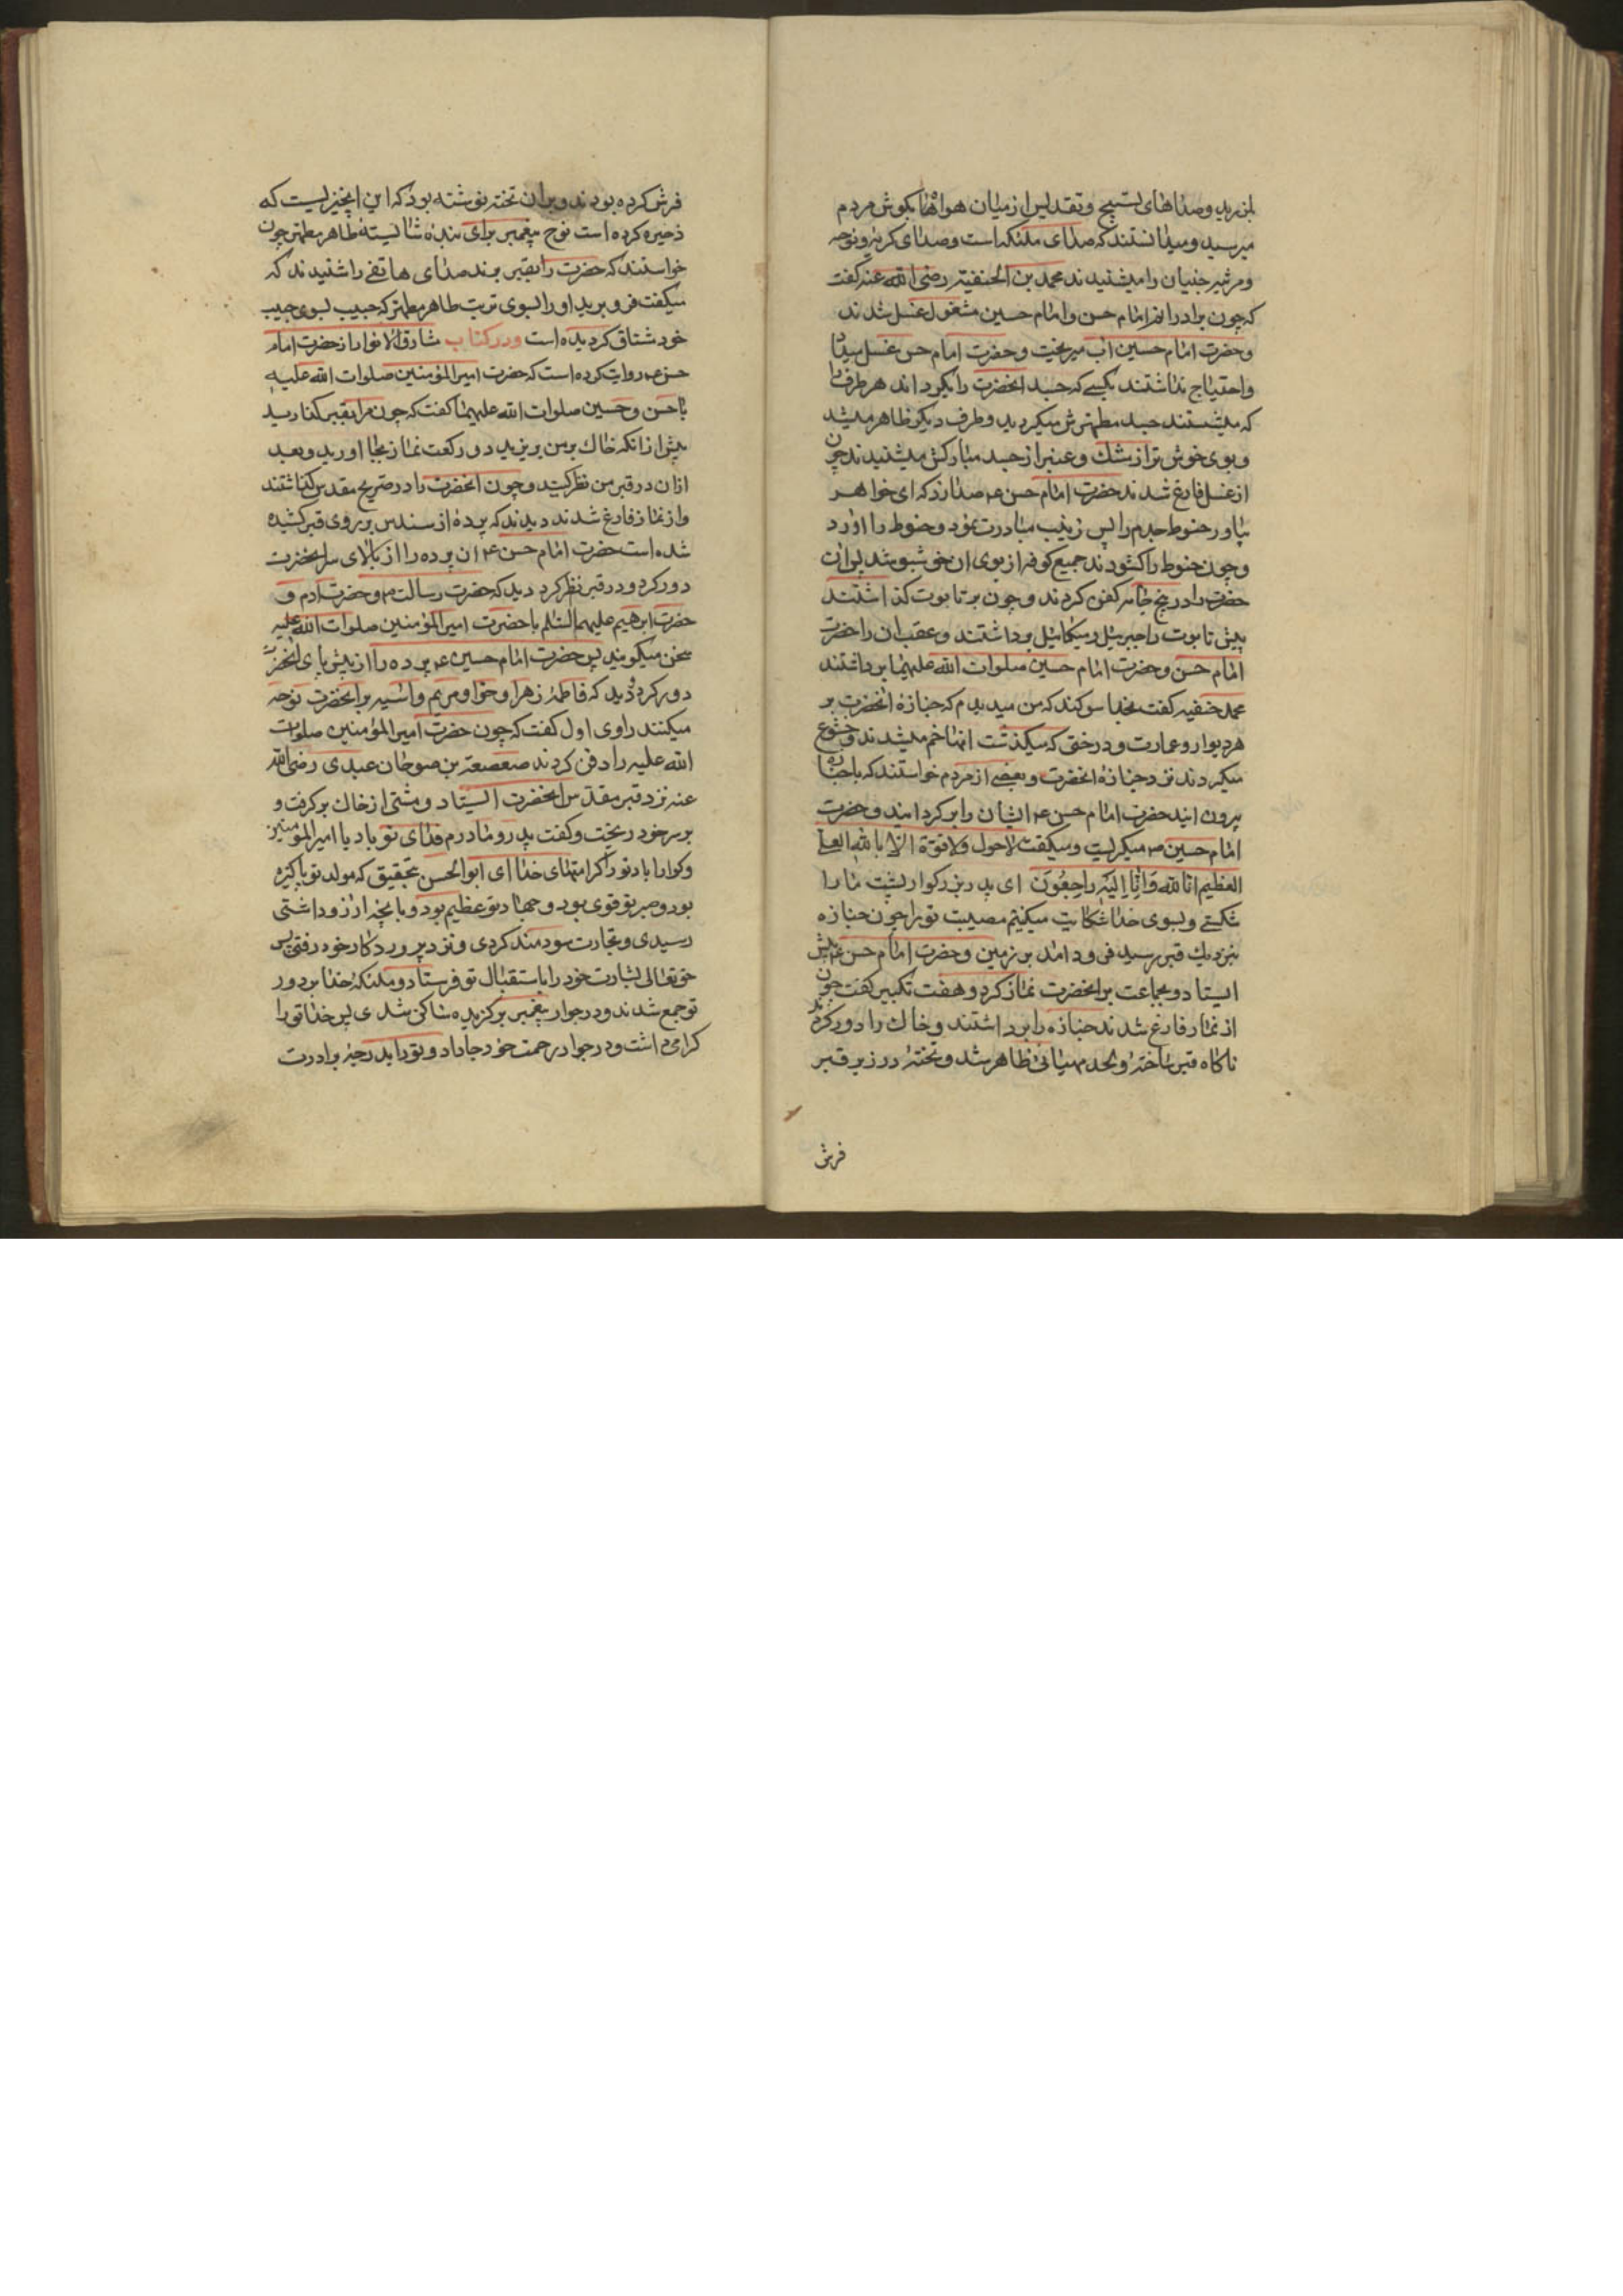 بلرزید و صداهای تسبیح و تقدیس از میان هواها بکوش مردم
میرسید و میدانستند که صدای ملئکه است و صدای کریه و نوحه
و مرثیه جنیان را میشنیدند محمد بن الحنفیة رضی الله عنه کفت
که چون برادرانم امام حسن و امام حسین مشغول غسل شدند
و حضرت امام حسین آب میریخت و حضرت امام حسن غسل میداد
و احتیاج نداشتند بکسی که جسد انحضرت را بکرداند هر طرف را
که میشستند جسد مطهرش میکردید و طرف دیکر ظاهر میشد
و بوی خوش تر از مشك و عنبر از جسد مبارکش میشنیدند چون
از غسل فارغ شدند حضرت امام حسن ع صدا زد که ای خواهر
بیاور حنوط جدم را پس زینب مبادرت نمود و حنوط را اورد
و چون حنوط را کشودند جمیع کوفه از بوی ان خوشبو شد پس ان
حضرت را در پنج جامه کفن کردند و چون بر تابوت کذاشتند
پیش تابوت را جبرئیل و میکائیل برداشتند و عقب ان را حضرت
امام حسن و حضرت امام حسین صلوات الله علیهما برداشتند
محمد حنفیه کفت بخدا سوکند که من میدیدم که جنازه انحضرت بر
هر دیوار و عمارت و درختی که میکذشت انها خم میشدند و خشوع
میکردند نزد جنازه انحضرت و بعضی از مردم خواستند که با جنازه
بیرون ایند حضرت امام حسن ع ایشان را برکردانید و حضرت
امام حسین ع میکریست و میکفت لاحول ولا قوة الا بالله العلی
العظیم انا لله وَانّا اِلَیْهِ راجِعُونَ ای پدر بزرکوار پشت ما را
شکستی و بسوی خدا شکایت میکنیم مصیبت تو را چون جنازه
بنزدیك قبر رسید فرود امد بر زمین و حضرت امام حسن ع پیش
ایستاد و بجماعت بر انحضرت نماز کرد و هفت تکبیر کفت چون
از نماز فارغ شدند جنازه را برداشتند و خاك را دور کردند
ناکاه قبر ساخته و لحد مهیائی ظاهر شد و تخته در زیر قبر
فرش
فرش کرده بودند و بر ان تخته نوشته بود که این انچیزیست که
ذخیره کرده است نوح پیغمبر برای بنده شایسته طاهر مطهر چون
خواستند که حضرت را بقبر برند صدای هاتفی را شنیدند که
میکفت فرو برید او را بسوی تربت طاهر مطهر که حبیب بسوی حبیب
خود مشتاق کردیده است و در کتاب مشارق الانوار از حضرت امام
حسن ع روایت کرده است که حضرت امیرالمؤمنین صلوات الله علیه
با حسن و حسین صلوات الله علیهما کفت که چون مرا بقبر کذارید
پیش از انکه خاك بر من بریزید دو رکعت نماز بجا اورید و بعد
ازان در قبر من نظر کنید و چون انحضرت را در ضریح مقدس کذاشتند
و از نماز فارغ شدند دیدند که پرده از سندس بر روی قبر کشیده
شده است حضرت امام حسن ع ان پرده را از بالای سر انحضرت
دور کرد و در قبر نظر کرد دید که حضرت رسالت ص و حضرت ادم و
حضرت ابرهیم علیهم السلام با حضرت امیرالمؤمنین صلوات الله علیه
سخن میکویند پس حضرت امام حسین ع پرده را از پیش پای انحضرت
دور کرد و دید که فاطمه زهرا و حوا و مریم و اسیه بر انحضرت نوحه
میکنند راوی اول کفت که چون حضرت امیرالمؤمنین صلوات
الله علیه را دفن کردند صعصعة بن صوحان عبدی رضی الله
عنه نزد قبر مقدس انحضرت ایستاد و مشتی از خاك برکرفت و
بر سر خود ریخت و کفت پدر و مادرم فدای تو باد یا امیرالمؤمنین
و کوارا باد تو را کرامتهای خدا ای ابوالحسن بتحقیق که مولد تو پاکیزه
بود و صبر تو قوی بود و جهاد تو عظیم بود و بانچه ارزو داشتی
رسیدی و تجارت سودمند کردی و نزد پروردکار خود رفتی پس
حق تعالی بشارت خود را باستقبال تو فرستاد و ملئکه خدا بر دور
تو جمع شدند و در جوار پیغمبر برکزیده ساکن شدی پس خدا تو را
کرامی داشت و در جوار رحمت خود جا داد و تو را بدرجه برادرت